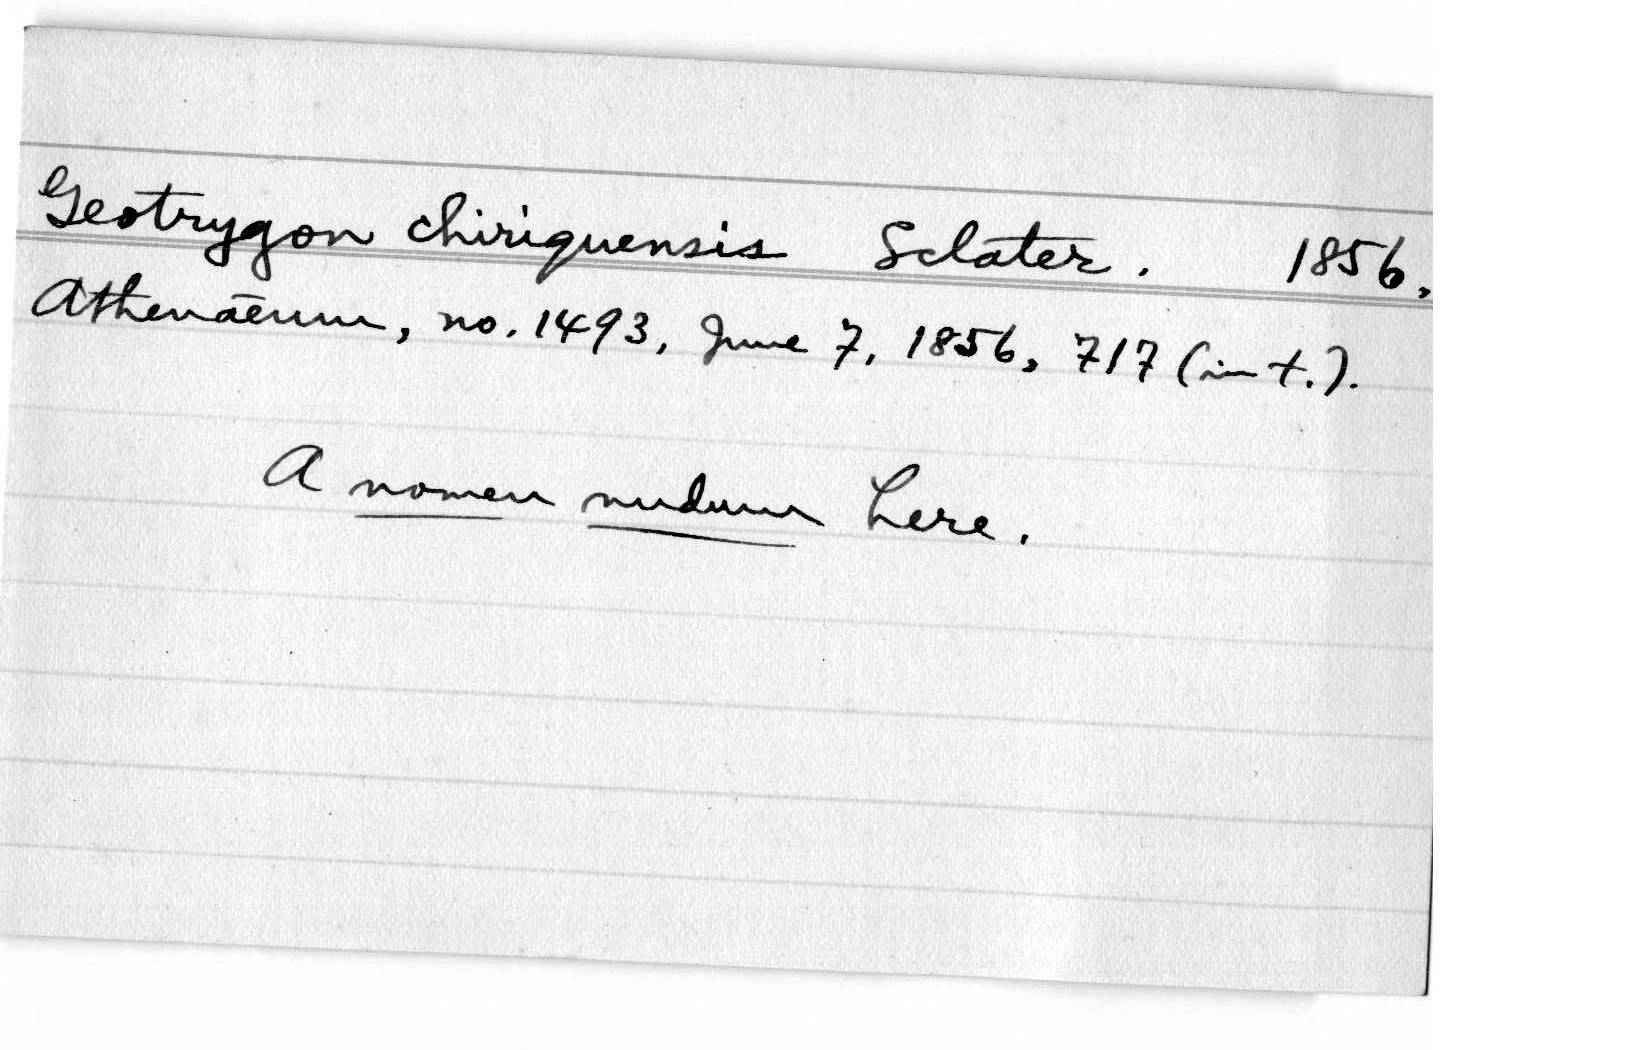 Geotrygon chiriquensis Sclater. 1856.
Athenaeum, no. 1493, June 7, 1856, 717 (in t.).
A nomen nudum here.